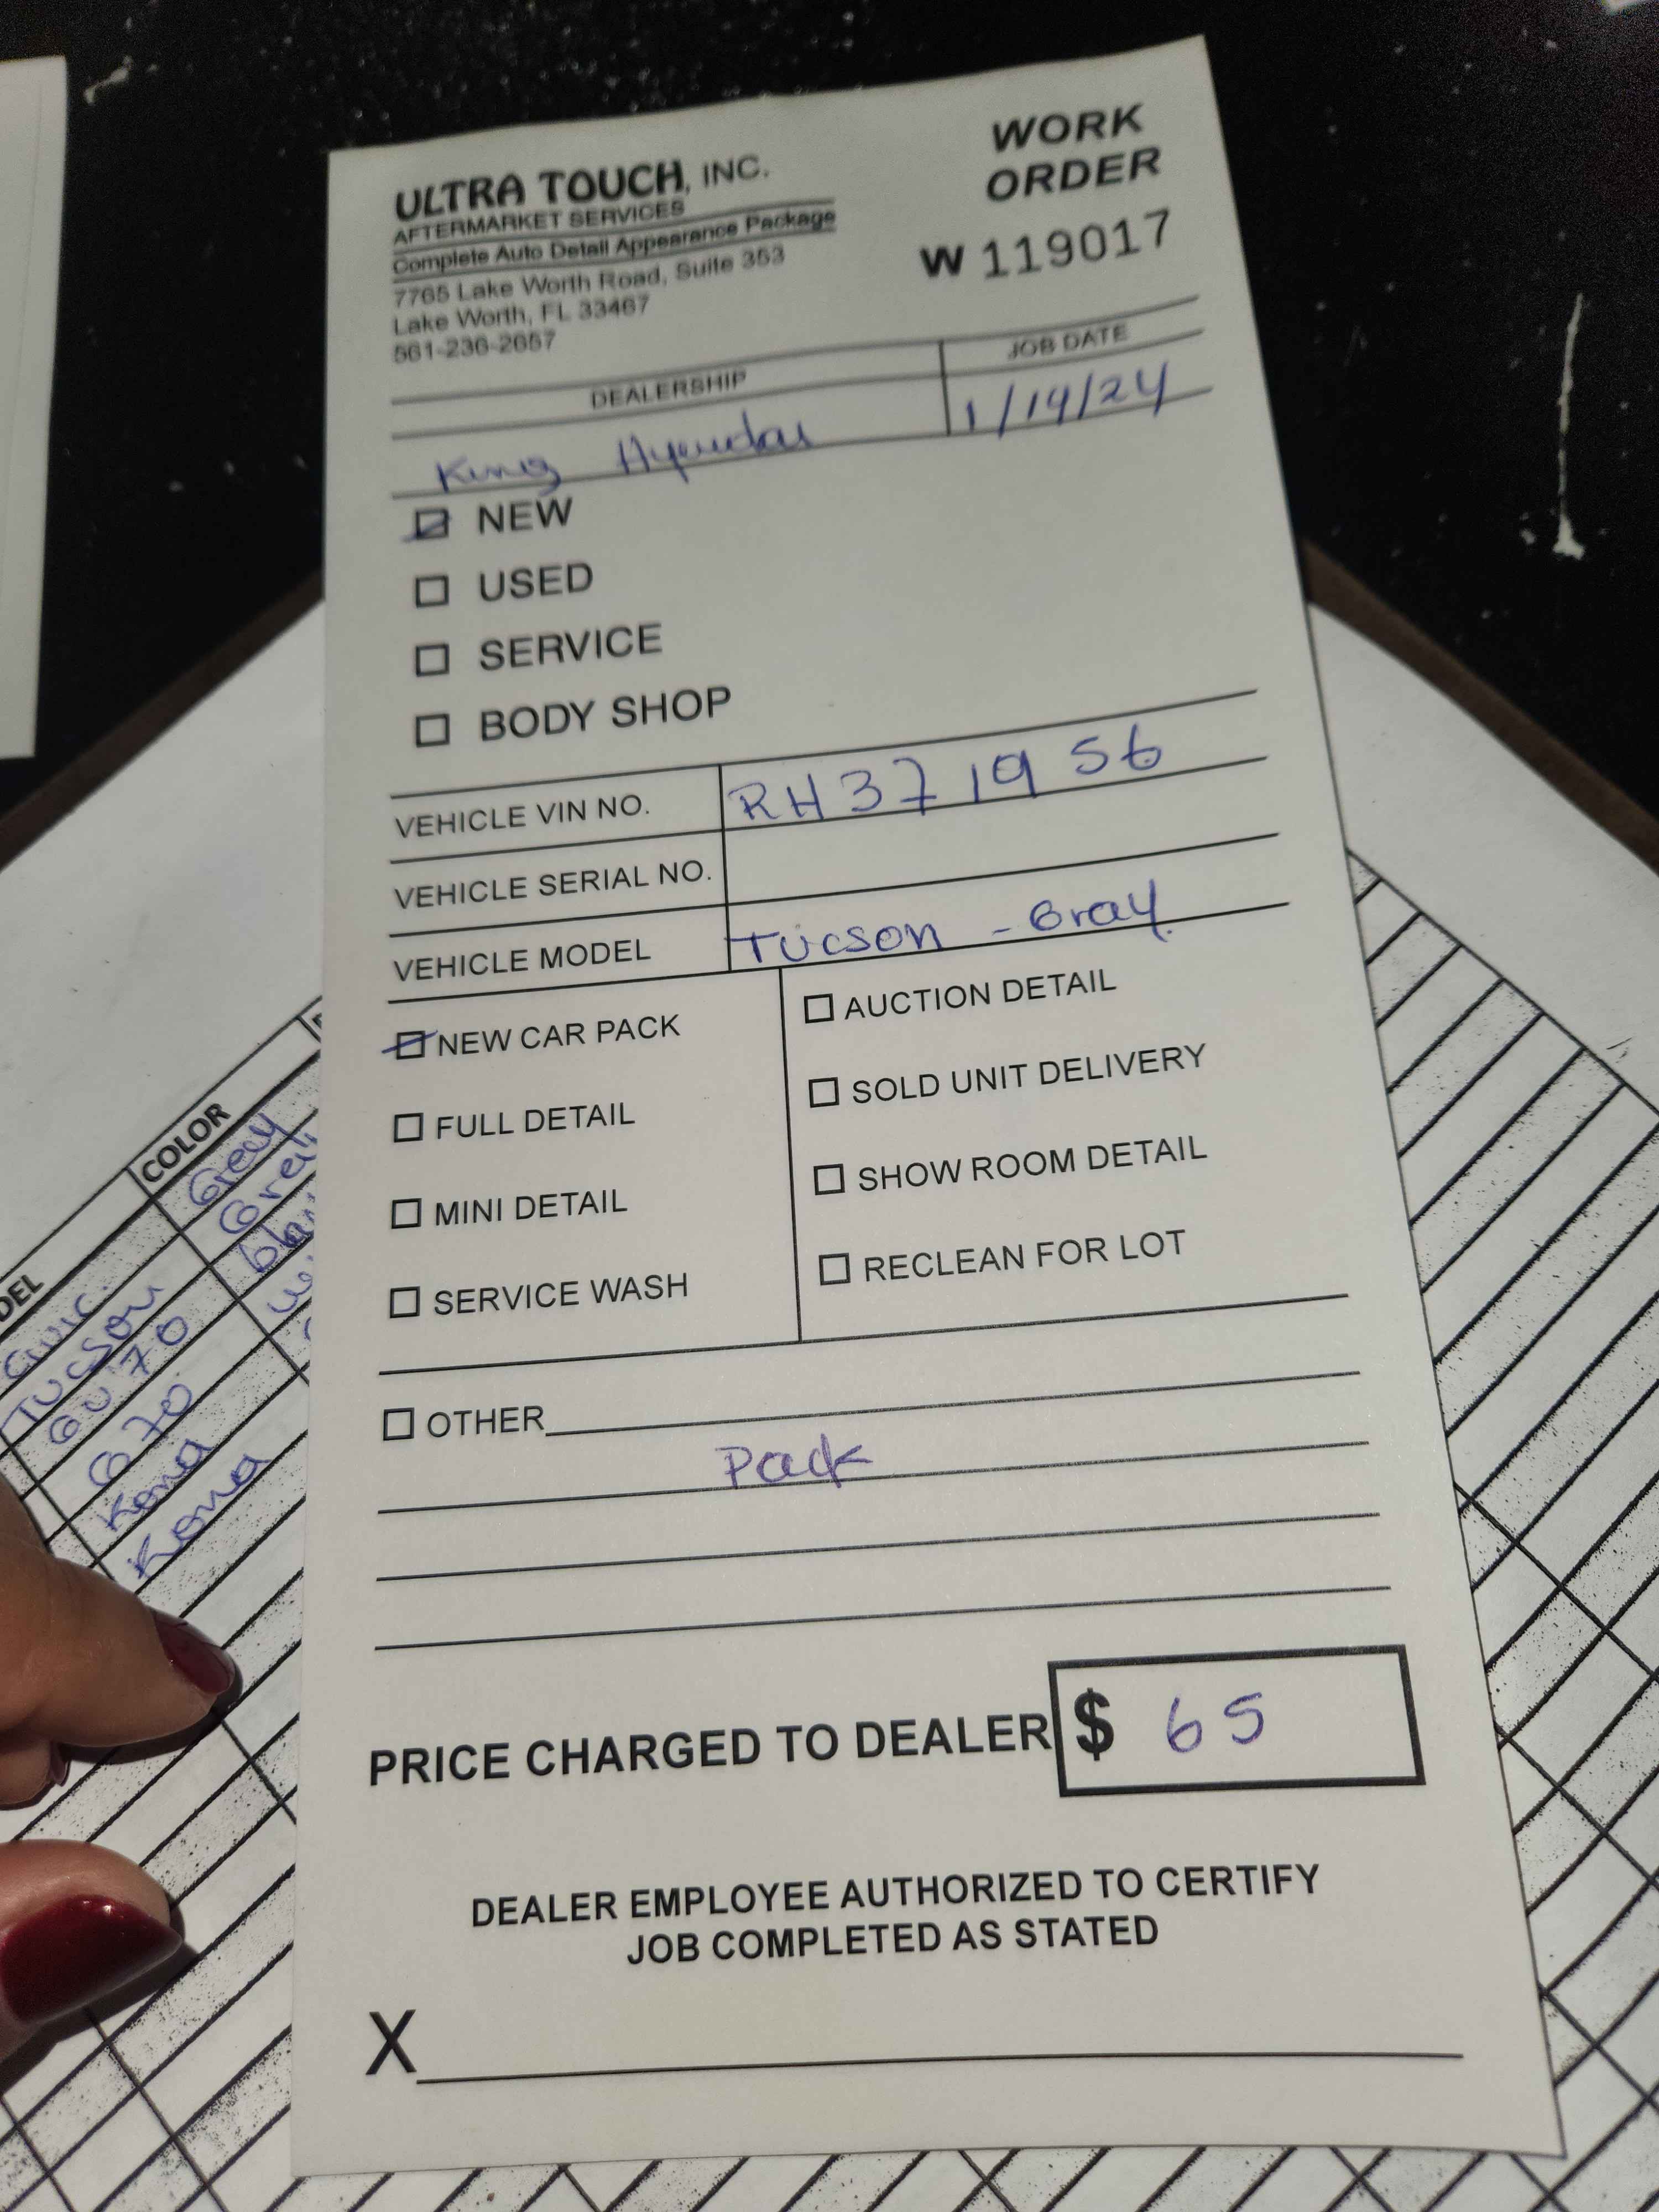 ULTRA TOUCH, INC.
AFTERMARKET SERVICES
Complete Auto Detail Appearance Package
7765 Lake Worth Road, Suite 353
Lake Worth, FL 33467
561-236-2657
WORK
ORDER
W 119017
DEALERSHIP
JOB DATE
King Hyundai
1/14/24
NEW
USED
SERVICE
BODY SHOP
VEHICLE VIN NO. RH371956
VEHICLE SERIAL NO.
VEHICLE MODEL Tucson - Gray
NEW CAR PACK
FULL DETAIL
MINI DETAIL
SERVICE WASH
AUCTION DETAIL
SOLD UNIT DELIVERY
SHOW ROOM DETAIL
RECLEAN FOR LOT
OTHER
Pack
PRICE CHARGED TO DEALER $ 65
DEALER EMPLOYEE AUTHORIZED TO CERTIFY
JOB COMPLETED AS STATED
X
DEL COLOR
Civic Gray
Tucson
GV70
G70
Kona
Kona